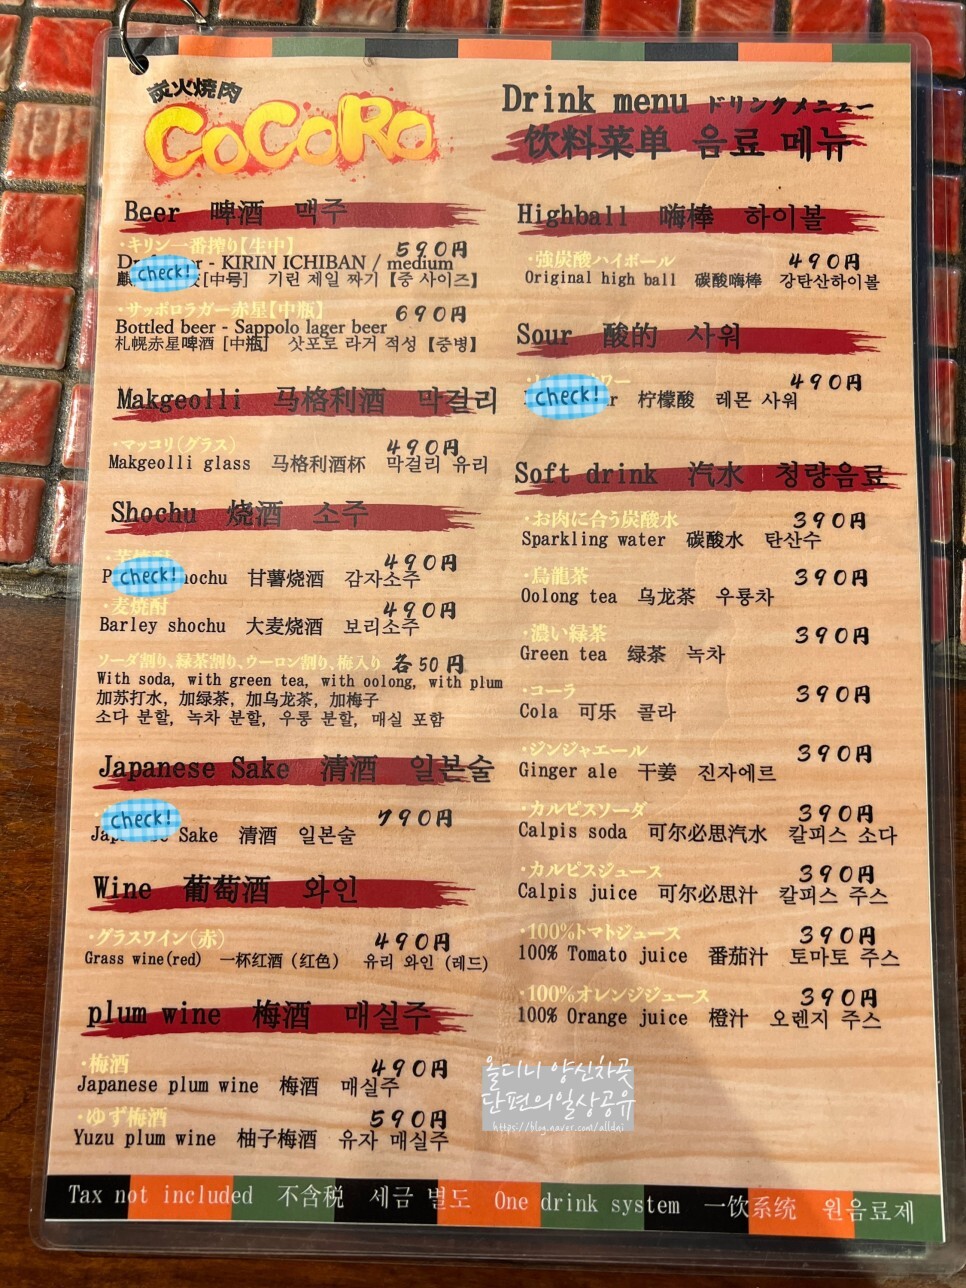 炭火焼肉
CoCoRo
Drink menu ドリンクメニュー
饮料菜单 음료 메뉴
Beer 啤酒 맥주
・キリン一番搾り【生中】 590円
check! - KIRIN ICHIBAN / medium
[中号] 기린 제일 짜기【중 사이즈】
・サッポロラガー赤星【中瓶】 690円
Bottled beer - Sappolo lager beer
札幌赤星啤酒 [中瓶] 삿포로 라거 적성【중병】
Makgeolli 马格利酒 막걸리
・マッコリ(グラス) 490円
Makgeolli glass 马格利酒杯 막걸리 유리
Shochu 烧酒 소주
490円
check! 甘薯烧酒 감자소주
・麦焼酎 490円
Barley shochu 大麦烧酒 보리소주
ソーダ割り、緑茶割り、ウーロン割り、梅入り 各50円
With soda, with green tea, with oolong, with plum
加苏打水, 加绿茶, 加乌龙茶, 加梅子
소다 분할, 녹차 분할, 우롱 분할, 매실 포함
Japanese Sake 清酒 일본술
790円
check! Sake 清酒 일본술
Wine 葡萄酒 와인
・グラスワイン(赤) 490円
Grass wine(red) 一杯红酒 (红色) 유리 와인 (레드)
plum wine 梅酒 매실주
・梅酒 490円
Japanese plum wine 梅酒 매실주
・ゆず梅酒 590円
Yuzu plum wine 柚子梅酒 유자 매실주
Highball 嗨棒 하이볼
・強炭酸ハイボール 490円
Original high ball 碳酸嗨棒 강탄산하이볼
Sour 酸的 사워
490円
check! 柠檬酸 레몬 사워
Soft drink 汽水 청량음료
・お肉に合う炭酸水 390円
Sparkling water 碳酸水 탄산수
・烏龍茶 390円
Oolong tea 乌龙茶 우룡차
・濃い緑茶 390円
Green tea 绿茶 녹차
・コーラ 390円
Cola 可乐 콜라
・ジンジャエール 390円
Ginger ale 干姜 진자에르
・カルピスソーダ 390円
Calpis soda 可尔必思汽水 칼피스 소다
・カルピスジュース 390円
Calpis juice 可尔必思汁 칼피스 주스
・100%トマトジュース 390円
100% Tomato juice 番茄汁 토마토 주스
・100%オレンジジュース 390円
100% Orange juice 橙汁 오렌지 주스
올디니 양신차곳
단편의일상공유
https://blog.naver.com/alldni
Tax not included 不含税 세금 별도 One drink system 一饮系统 원음료제